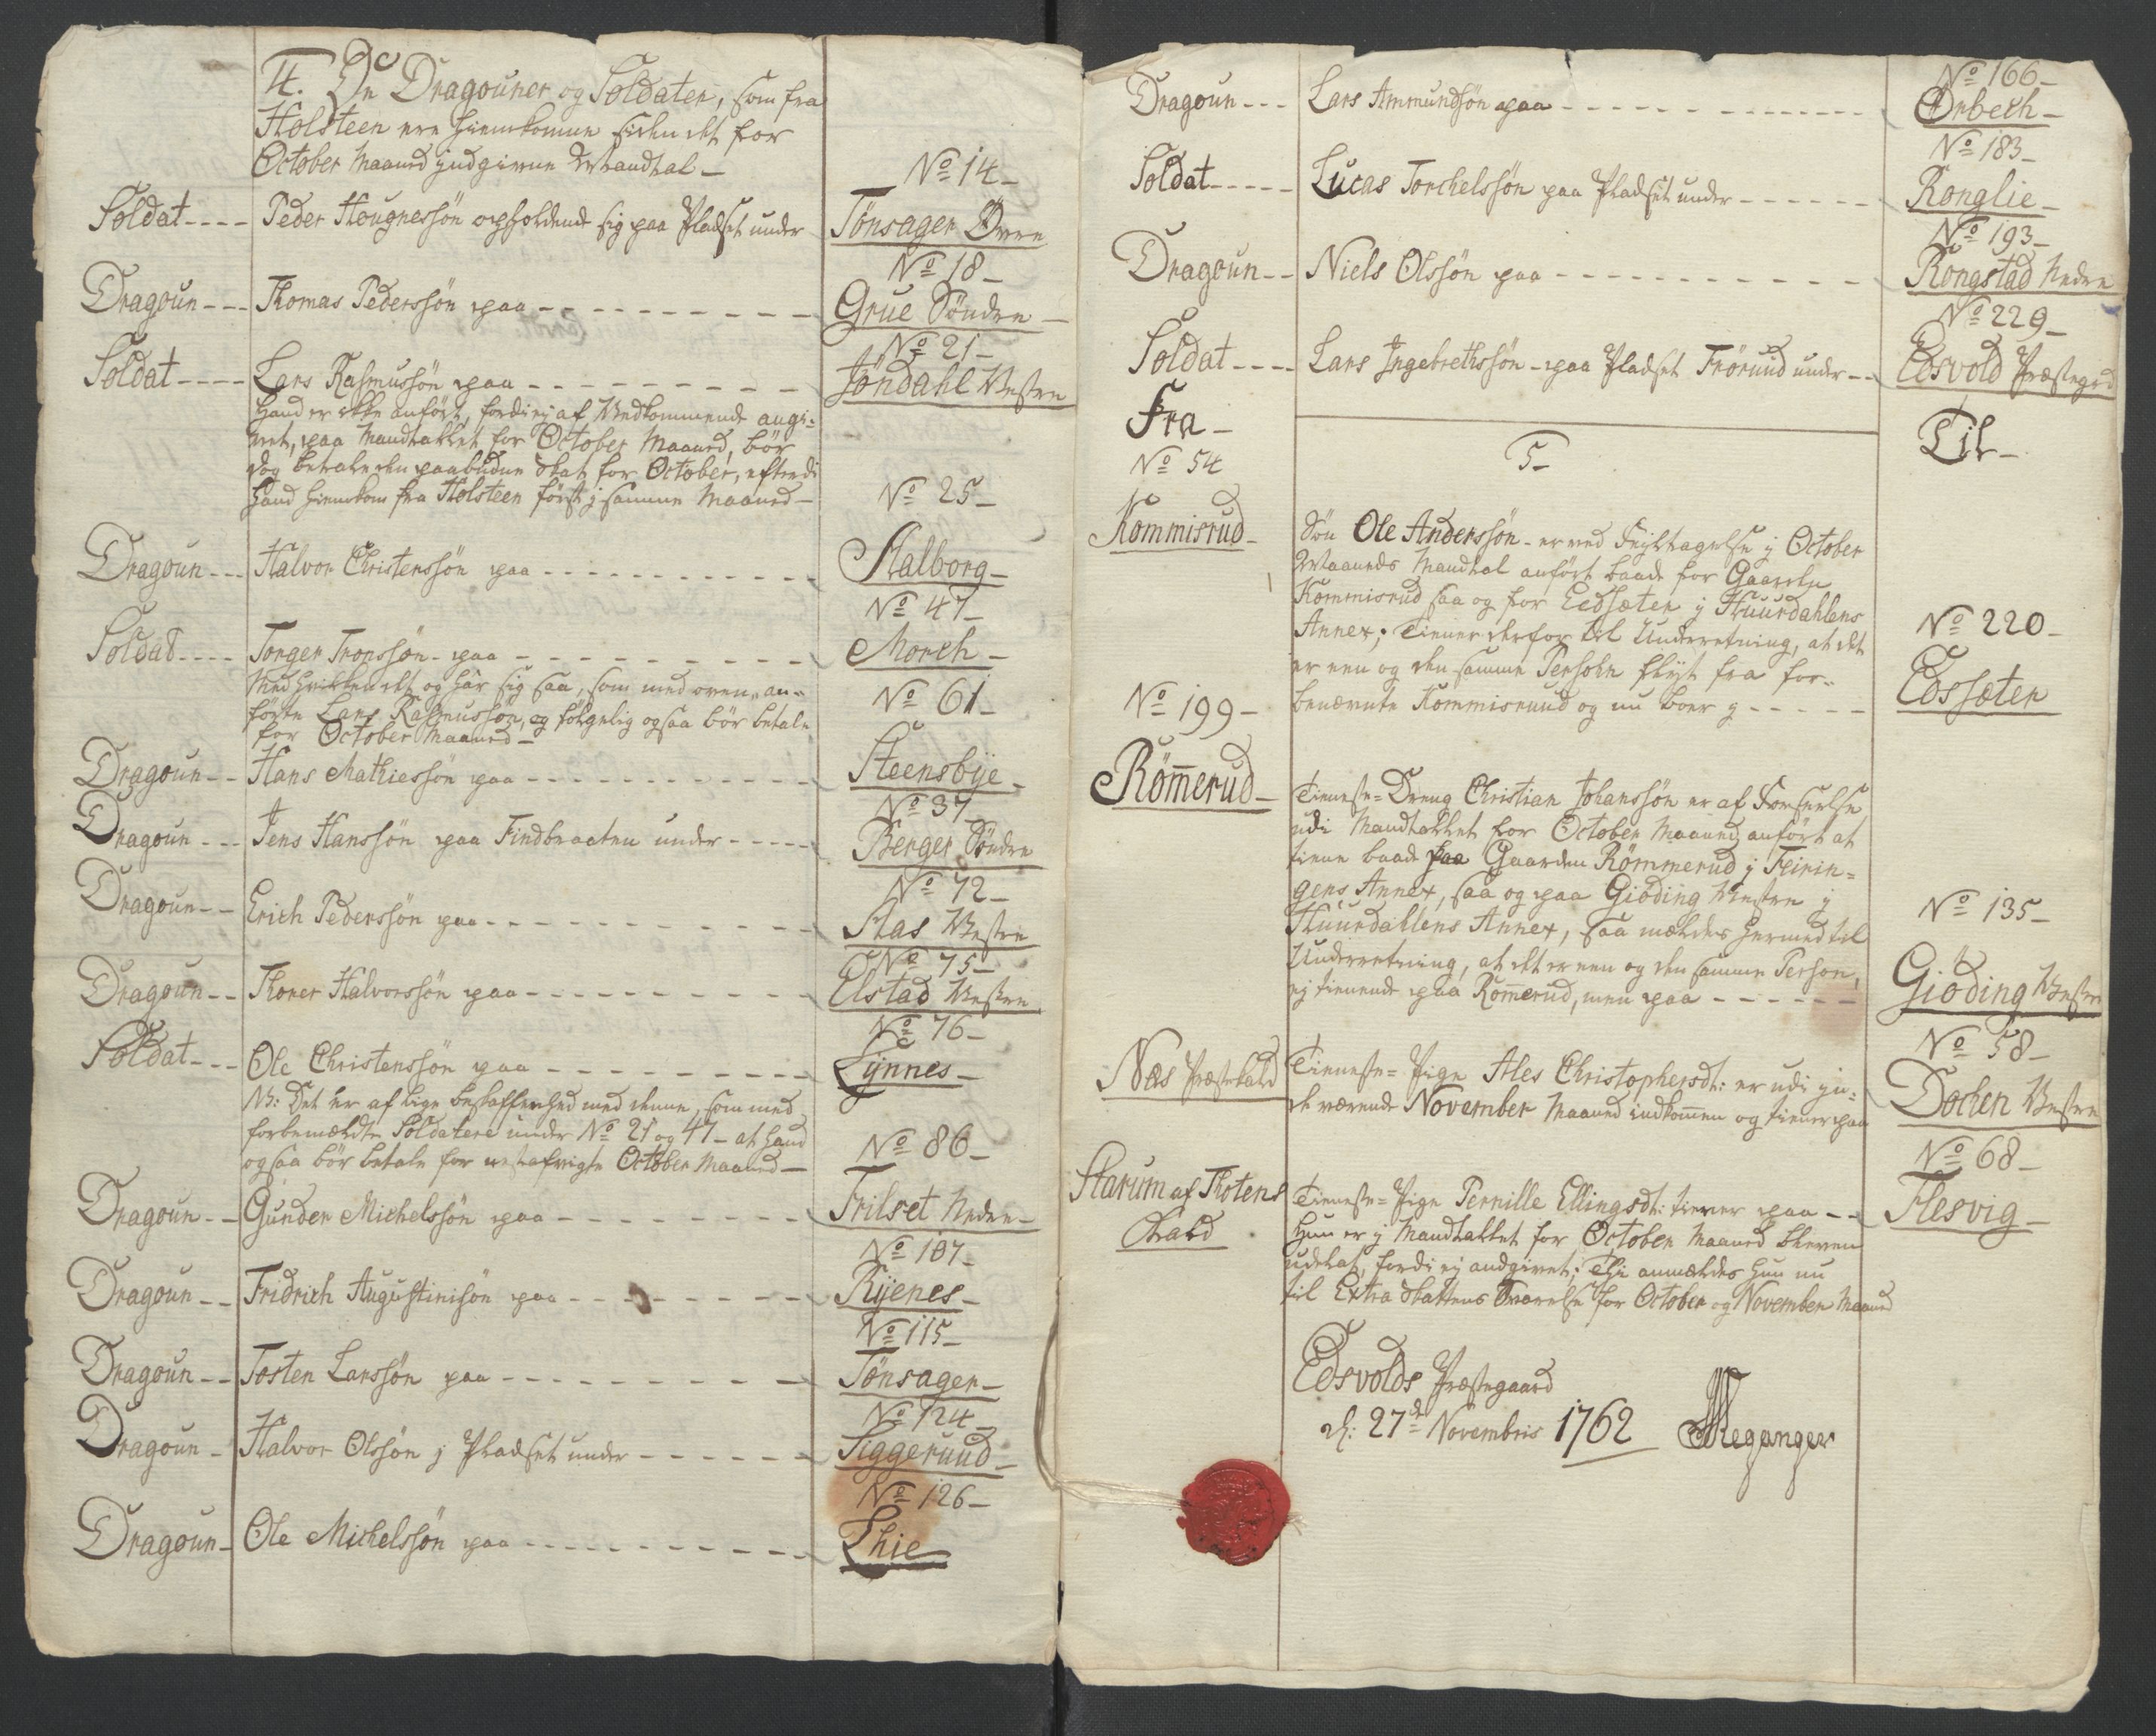 4. De Dragouner og Soldater, som fra
Holsteen ere hiemkomne siden det for
October Maaned indgivne Mandtal -
No 14 -
Soldat ---- Peder Hougnessön opholdende sig paa Pladset under Tönsager Övre
No 18 -
Dragoun --- Thomas Pederssön paa --------- Grue Söndre -
No 21 -
Soldat ---- Lars Rasmussön paa --------- Jöndahl Westre
Hand er ikke anfört, fordi ej af Vedkommende angi-
vet, paa Mandtallet for October Maaned, bör
dog betale den paabudne Skat for October, efterdi
hand hiemkom fra Holsteen först i samme Maaned -
No 25 -
Dragoun --- Halvor Christenssön paa ----------- Stalborg -
No 47 -
Soldat ---- Torger Tronssön - paa --------- Morch -
Med hvilken det og har sig saa, som med oven an-
förte Lars Rasmussön, og fölgelig ogsaa bör betale
for October Maaned -
No 61 -
Dragoun -- Hans Mathiessön paa ----------- Steensbye -
No 37
Dragoun --- Jens Hanssön paa Findbraaten under ----- Berger Söndre
No 72 -
Dragoun -- Erich Pederssön paa ----------- Stas Westre
No 75 -
Dragoun -- Thorer Halvorssön paa --------- Elstad Westre
No 76 -
Soldat --- Ole Christenssön paa --------- Lynnes -
NB: Det er af lige beskaffenhed med denne, som med
forbemeldte Soldatere under No 21 og 47 - at hand
ogsaa bör betale for nestafvigte October Maaned -
No 86 -
Dragoun -- Gunder Michelssön paa -------- Trilset Nedre -
No 107 -
Dragoun -- Fridrich Augustinisön paa ------- Ryenes -
No 115 -
Dragoun -- Tosten Larssön paa --------- Tönsager -
No 124 -
Dragoun - Halvor Olssön i Pladset under ------ Siggeruud -
No 126 -
Dragoun - Ole Michelssön paa ---------- Lhie
No 166 -
Dragoun --- Lars Ammundsön paa ------------ Örbech -
No 183 -
Soldat ----- Lucas Torchelssön paa Pladset under ------ Ronglie -
No 193 -
Dragoun -- Niels Olssön paa ---------- Rongstad Nedre
No 229 -
Soldat ---- Lars Ingebrethssön - paa Pladset Trörud under -- Edsvold Præstegrd
Fra -
5 -
Til -
No 54
Kommisrud - Sön Ole Anderssön - er ved Fejltagelse i October
Maaneds Mandtal anfört baade for Gaarden
Kommisrud saa og for Eedsæter i Huurdahlens
Annex; Tiener derfor til Underretning, at det
er een og den samme Persohn flyt fra for-
benævnte Kommisruud og nu boer i -----
No 220 -
Edssæter
No 199 -
Römerud - Tieneste-Dreng Christian Johanssön er af Forseelse
udi Mandtallet for October Maaned anfört at
tiene baade paa Gaarden Römmerud i Feirin-
gens Annex, saa og paa Giöding Westre i
Huurdahlens Annex, saa meldes hermed til
Underretning, at det er een og den samme Person,
ej tienende paa Römerud, men paa ------
No 135 -
Giöding Westre
No 58 -
Næs Præstekald Tieneste-Pige Ales Christophersdt: er udi in-
de værende November Maaned indkommen og tiener paa Dochen Westre
No 68 -
Starum af Thotens Tieneste-Pige Pernille Ellingsdt: tiener paa -- Flesvig -
Kald
Hun er i Mandtallet for October Maaned bleven
udelat, fordi ej andgivet; Thi anmeldes hun nu
til Extra Skattens Svarelse for October og November Maaned
Edsvolds Præstegaard
d: 27de Novembris 1762